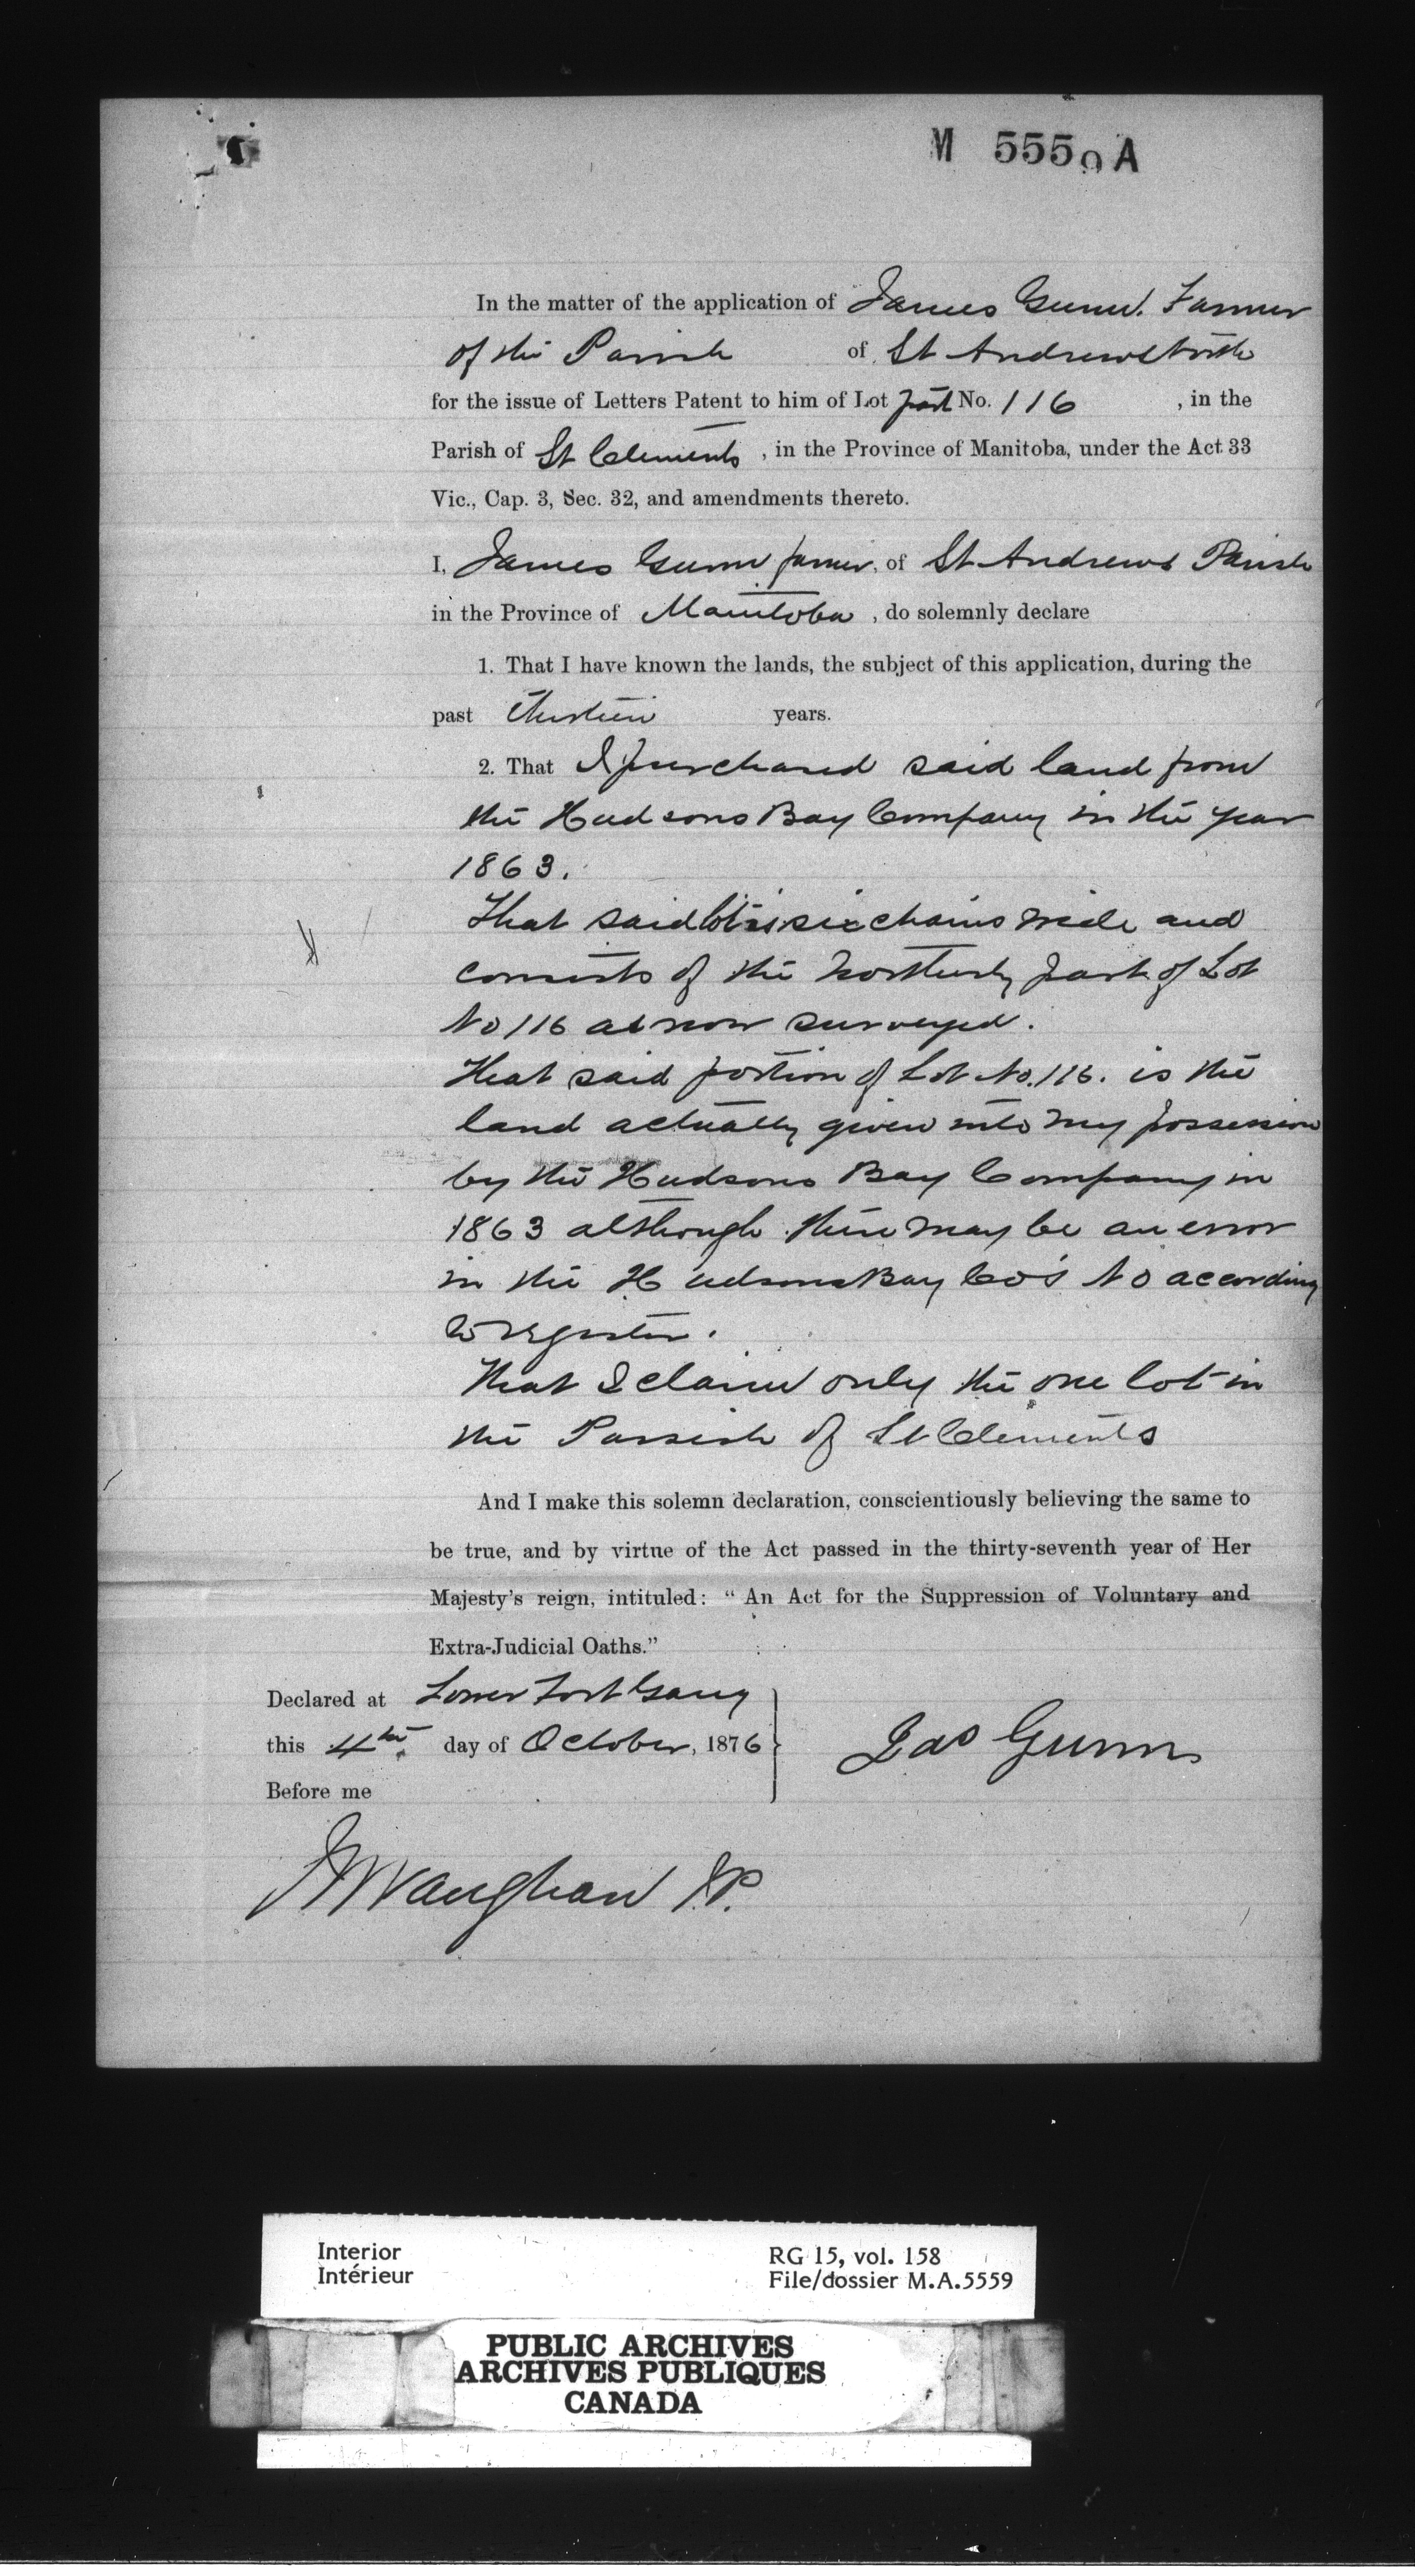 M 5559 A
In the matter of the application of James Gunn. Farmer
of the Parish of St Andrews North
for the issue of Letters Patent to him of Lot part No. 116 , in the
Parish of St Clements , in the Province of Manitoba, under the Act 33
Vic., Cap. 3, Sec. 32, and amendments thereto.
I, James Gunn farmer, of St Andrews Parish
in the Province of Manitoba , do solemnly declare
1. That I have known the lands, the subject of this application, during the
past thirteen years.
2. That I purchased said land from
the Hudsons Bay Company in the year
1863.
That said lot is six chains wide and
consists of the northerly part of Lot
No 116 as now surveyed.
That said portion of Lot No. 116. is the
land actually given into my possession
by the Hudsons Bay Company in
1863 although there may be an error
in the Hudsons Bay Co's No according
to register.
That I claim only the one lot in
the Parish of St Clements
And I make this solemn declaration, conscientiously believing the same to
be true, and by virtue of the Act passed in the thirty-seventh year of Her
Majesty's reign, intituled: " An Act for the Suppression of Voluntary and
Extra-Judicial Oaths."
Declared at Lower Fort Garry
this 4th day of October, 1876
Jas Gunn
Before me
Vaughan J.P.
Interior
Intérieur
RG 15, vol. 158
File/dossier M.A.5559
PUBLIC ARCHIVES
ARCHIVES PUBLIQUES
CANADA